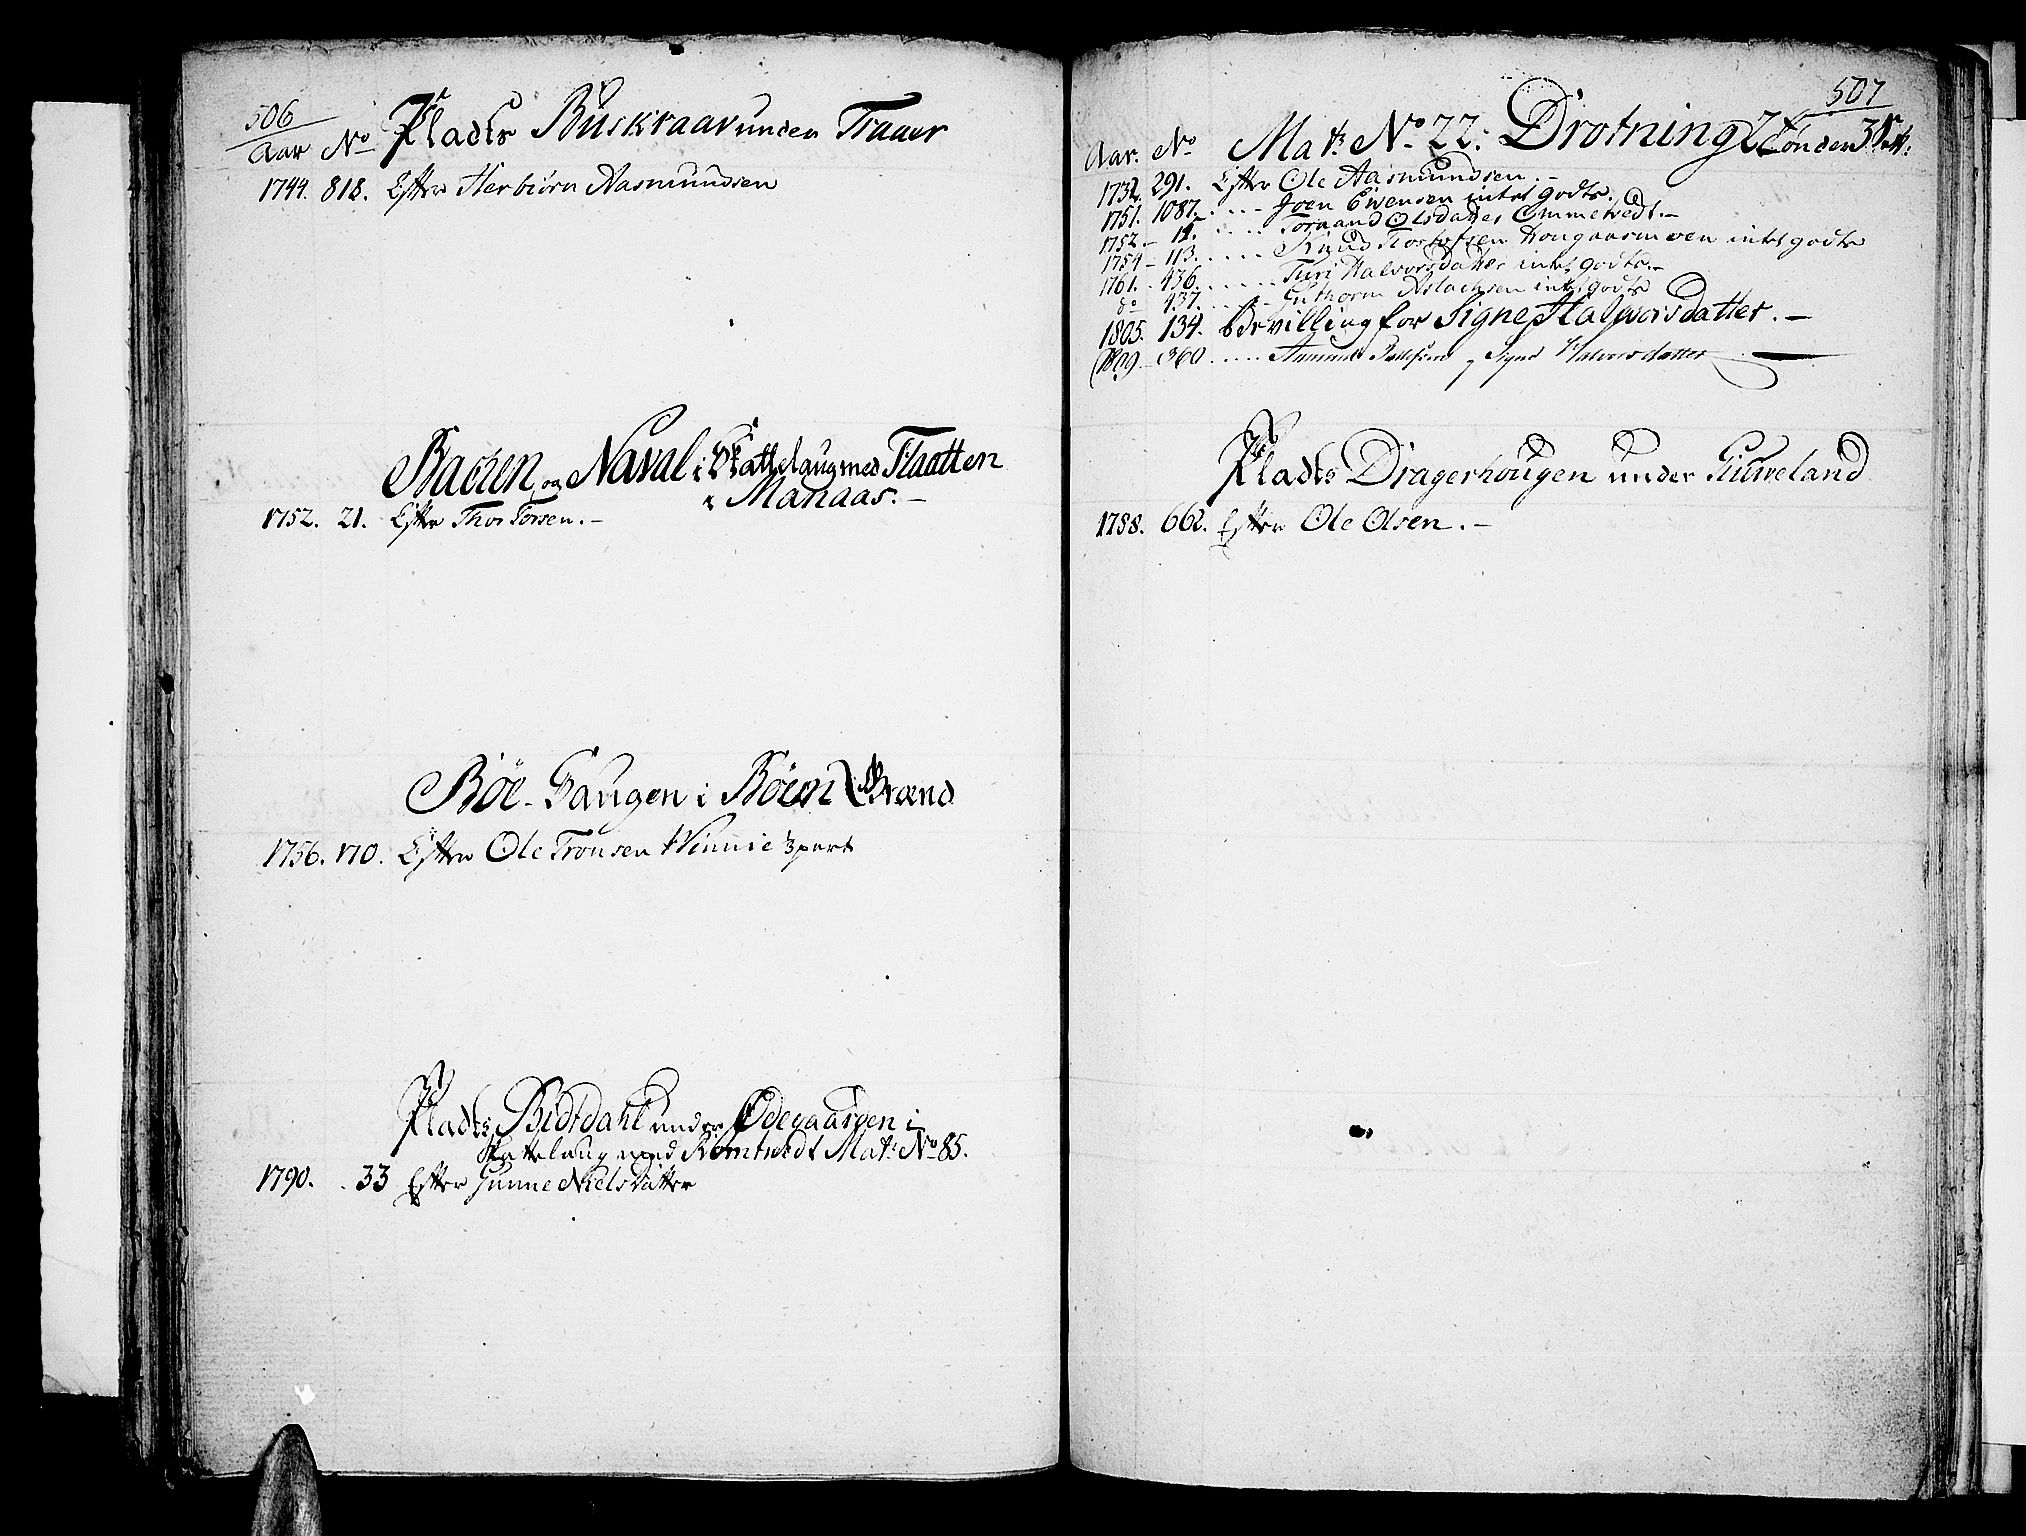 506
Aar No Pladts Buskraar under Traaer
1744. 818. Efter Herbiørn Aasmundsen
Bachen og Naval i Skattelaug med Flaatten
& Manaas. –
1752. 21. Efter Thor Torsen. –
Bøe-Haugen i Bøen i Grænd
1756. 170. Efter Ole Tronsen Vinnie 1/3 part
Pladts Bidtdahl under Ødegaarden i
Skattelaug med Romtvedt Mat: No 85.
1790. . 33 Efter Gunne Nielsdatter
507
Aar. No Mat: No. 22: Drotning 2 Tønder 3 Sett:
1732. 291. Efter Ole Aasmundsen. –
1751. 1087. . . . Joen Evensen intet godts.
1752. – 11. . . . Toraand Olsdatter Ommetvedt. –
1754 – 113. . . . Knud Torlofsen Hougaasmoen intet godts
1761. – 436. . . . Turi Halvorsdatter intet godts. –
do 437. . . . Guthorm Aslachsen intet godts
1805. 134. Bevilling for Signe Halvorsdatter. –
1809 360 . . . . . Halvorsdatter –
Pladts Dragerhougen under Giuveland
1788. 662. Efter Ole Olsen. –